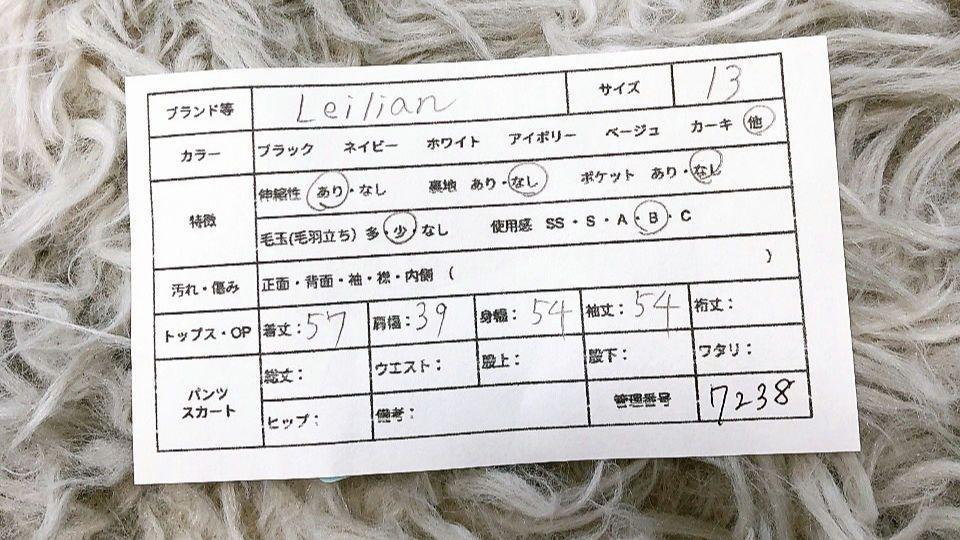 ブランド等 Leilian サイズ 13
カラー ブラック ネイビー ホワイト アイボリー ベージュ カーキ 他
特徴 伸縮性 あり・なし 裏地 あり・なし ポケット あり・なし
毛玉(毛羽立ち) 多・少・なし 使用感 SS・S・A・B・C
汚れ・傷み 正面・背面・袖・襟・内側 ( )
トップス・OP 着丈:57 肩幅:39 身幅:54 袖丈:54 裄丈:
パンツ スカート 総丈: ウエスト: 股上: 股下: ワタリ:
ヒップ: 備考: 管理番号 7238